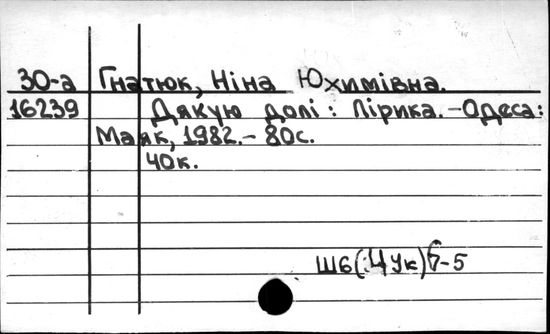 30-а Гнатюк, Ніна Юхимівна.
16239 Дякую долі: Лірика. - Одеса:
Маяк, 1982. - 80с.
40к.
Ш6(4Ук)6-5